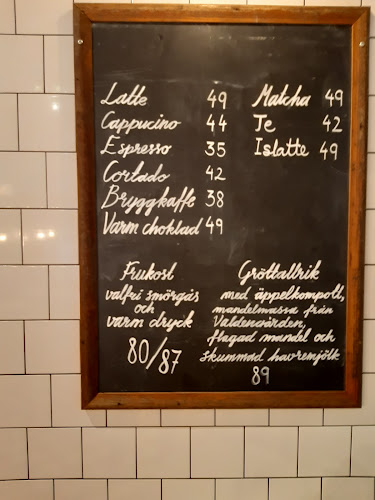 Latte 49
Cappucino 44
Espresso 35
Cortado 42
Bryggkaffe 38
Varm choklad 49
Matcha 49
Te 42
Islatte 49
Frukost
valfri smörgås
och
varm dryck
80/87
Gröttallrik
med äppelkompott,
mandelmassa från
flagad mandel och
skummad havremjölk
89